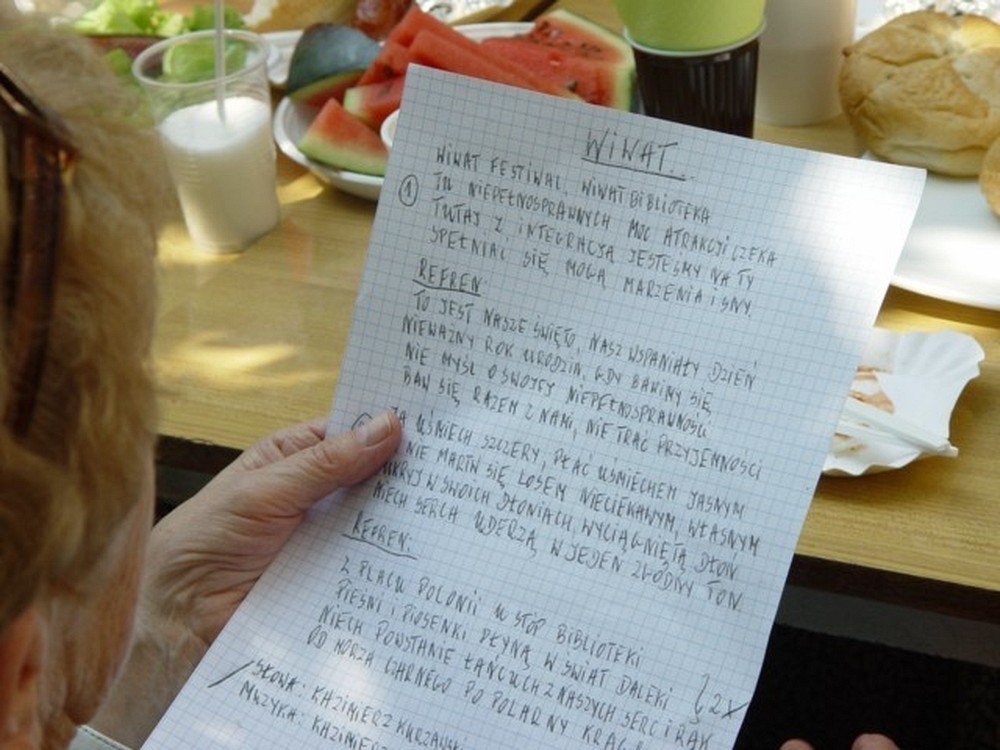 WIWAT...
① WIWAT FESTIWAL, WIWAT BIBLIOTEKA
TU NIEPEŁNOSPRAWNYCH MOC ATRAKCJI CZEKA
TUTAJ Z INTEGRACJĄ JESTEŚMY NA TY
SPEŁNIAĆ SIĘ MOGĄ MARZENIA I SNY.
REFREN
TO JEST NASZE ŚWIĘTO, NASZ WSPANIAŁY DZIEŃ
NIEWAŻNY ROK URODZIN, GDY BAWIMY SIĘ
NIE MYŚL O SWOJEJ NIEPEŁNOSPRAWNOŚCI
BAW SIĘ RAZEM Z NAMI, NIE TRAĆ PRZYJEMNOŚCI
ZA UŚMIECH SZCZERY, PŁAĆ UŚMIECHEM JASNYM
NIE MARTW SIĘ LOSEM NIECIEKAWYM, WŁASNYM
UKRYJ W SWOICH DŁONIACH, WYCIĄGNIĘTĄ DŁOŃ
NIECH SERCA UDERZĄ W JEDEN ZGODNY TON.
REFREN:
Z PLACU POLONII U STÓP BIBLIOTEKI
PIEŚNI I PIOSENKI PŁYNĄ W ŚWIAT DALEKI
NIECH POWSTANIE ŁAŃCUCH Z NASZYCH SERC I RĄK
OD MORZA CZARNEGO PO POLARNY KRĄG } 2x
SŁOWA: KAZIMIERZ
MUZYKA: KAZIMIERZ